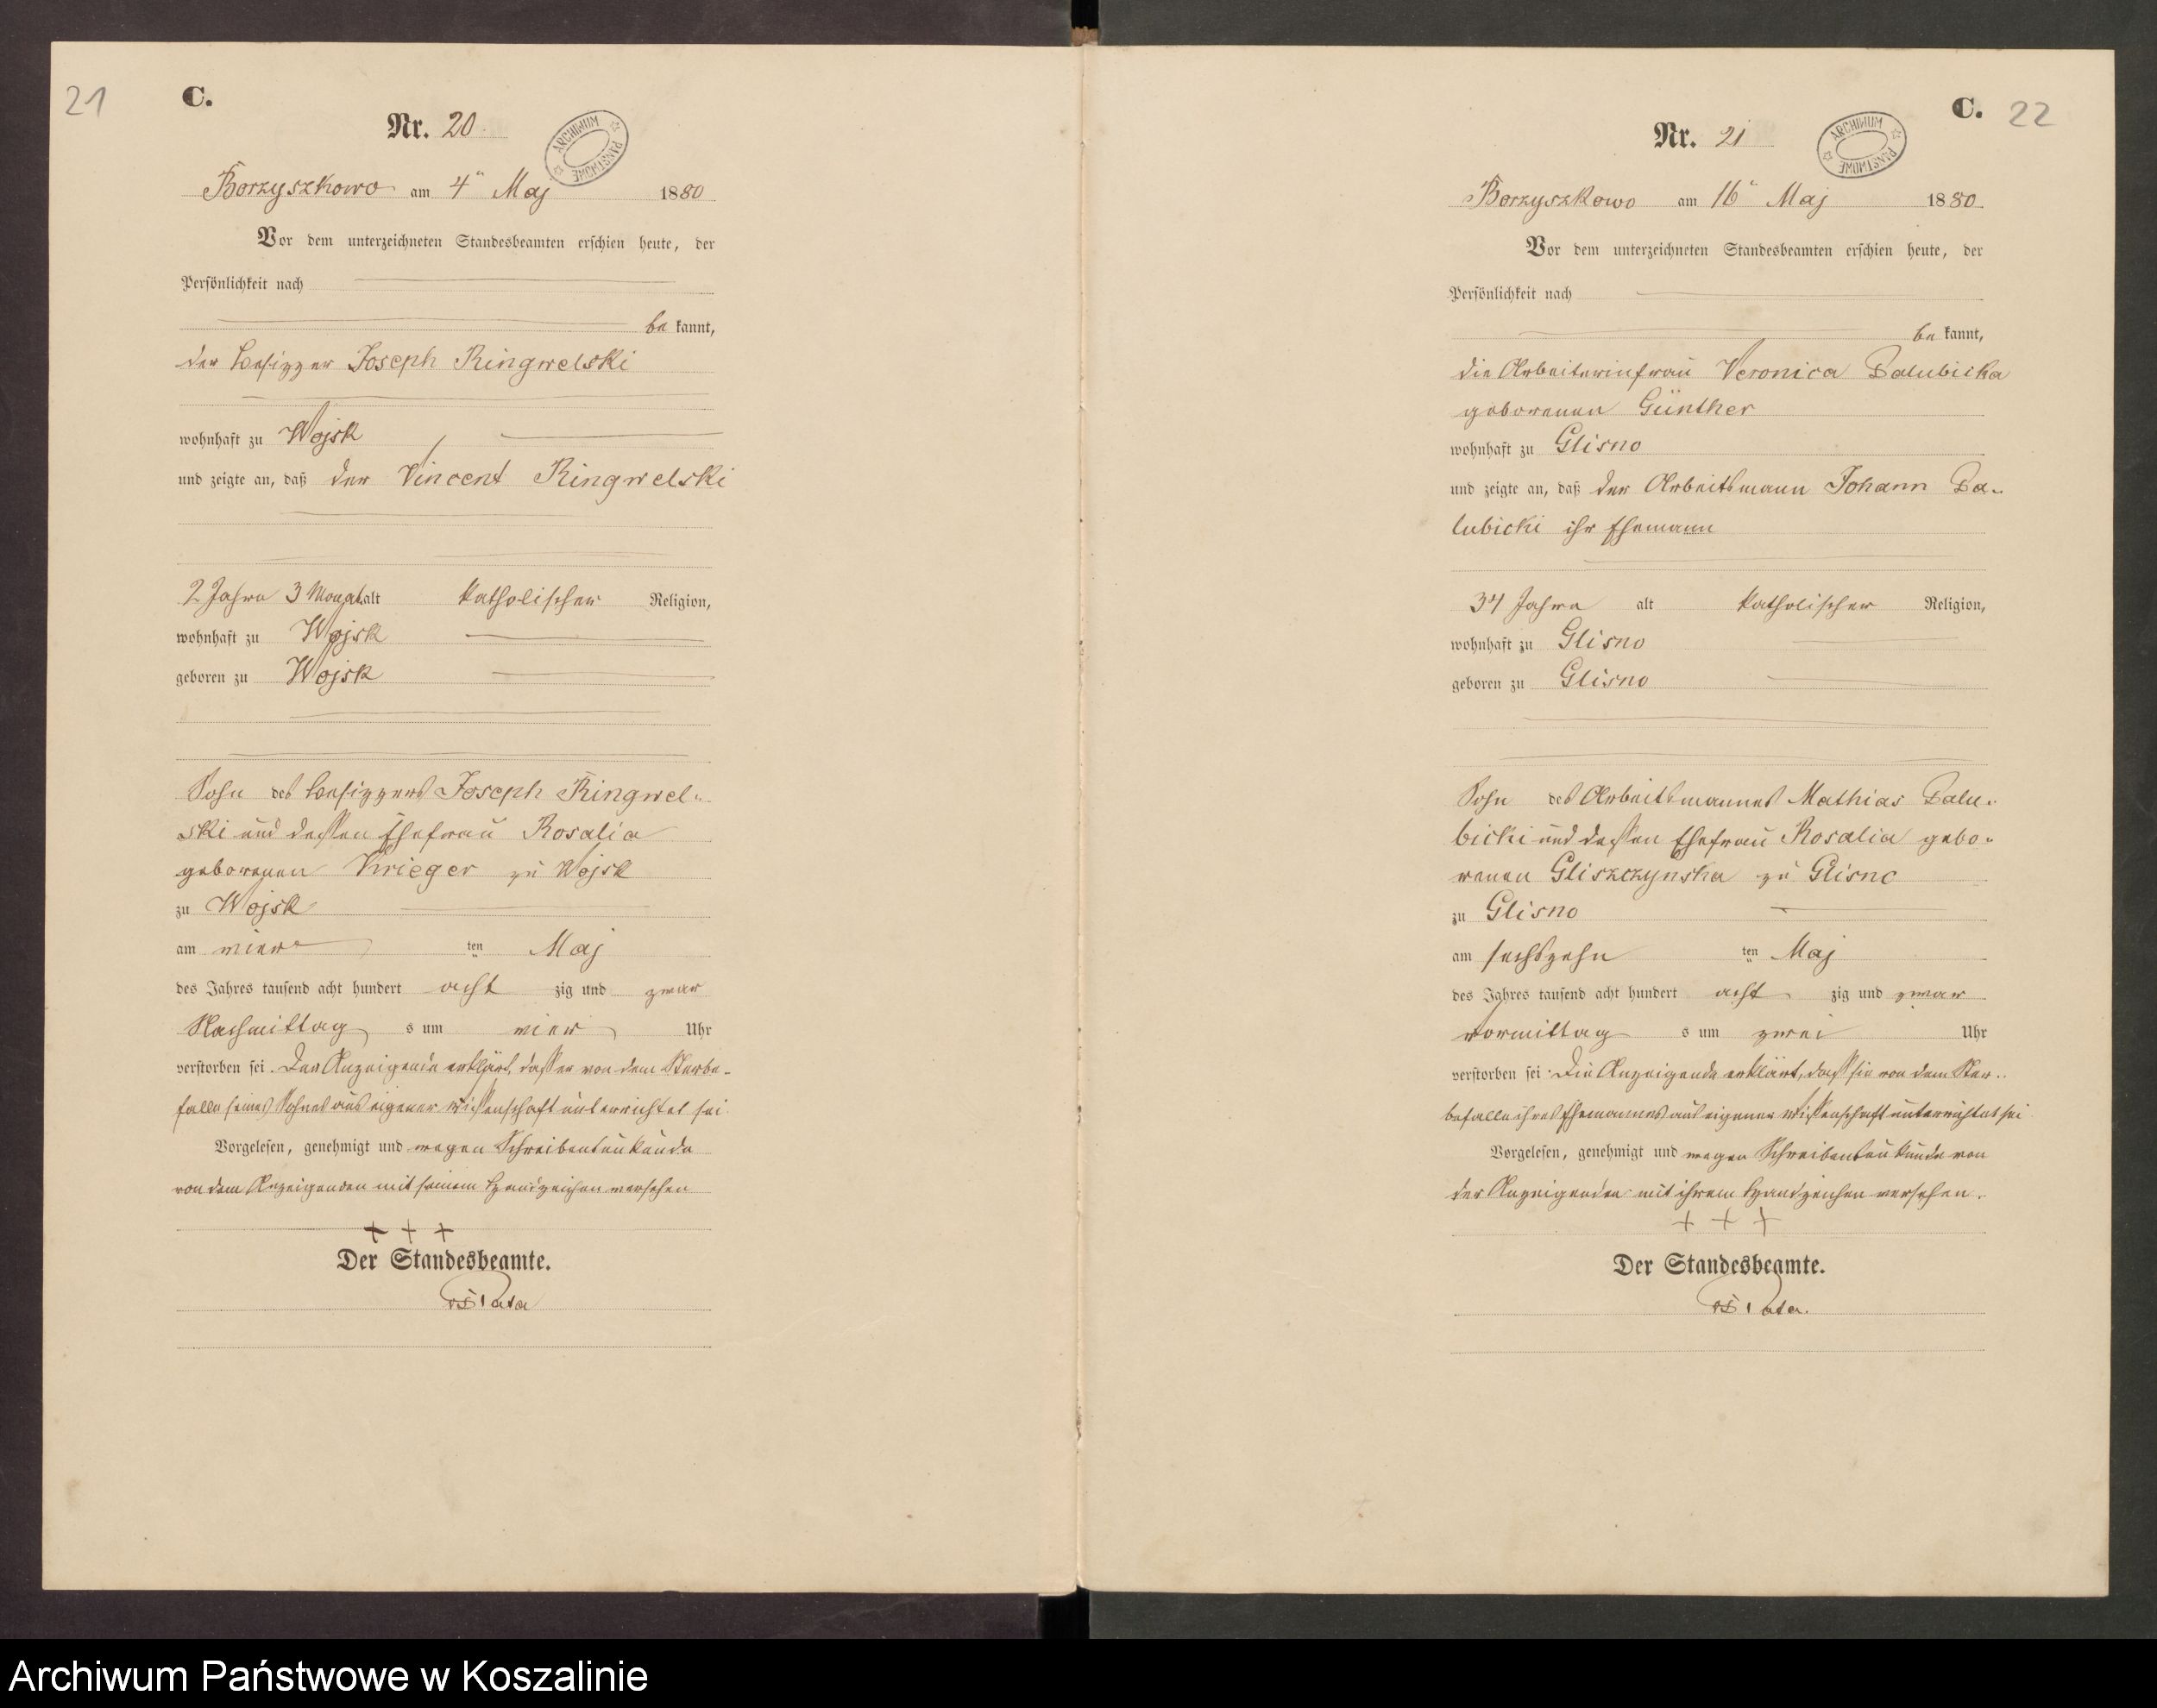 21
C.
Nr. 20
ARCHIWUM PAŃSTWOWE
Borzyszkowo am 4ᵗ Maj 1880
Vor dem unterzeichneten Standesbeamten erschien heute, der
Persönlichkeit nach
be kannt,
der Besizzer Joseph Ringwelski
wohnhaft zu Wojsk
und zeigte an, daß der Vincent Ringwelski
2 Jahre 3 Monat alt katholischer Religion,
wohnhaft zu Wojsk
geboren zu Wojsk
Sohn des Besizzers Joseph Ringwel-
ski und dessen Ehefrau Rosalia
geborenen Krieger zu Wojsk
zu Wojsk
am vier ten Maj
des Jahres tausend acht hundert acht zig und zwar
Nachmittag s um vier Uhr
verstorben sei. Der Anzeigende erklärt, dass er von dem Sterbe-
falle seines Sohnes aus eigener Wissenschaft unterrichtet sei.
Vorgelesen, genehmigt und wegen Schreibensunkunde
von dem Anzeigenden mit seinem Handzeichen versehen
+ + +
Der Standesbeamte.
C. 22
Nr. 21
ARCHIWUM PAŃSTWOWE
Borzyszkowo am 16ᵗ Maj 1880.
Vor dem unterzeichneten Standesbeamten erschien heute, der
Persönlichkeit nach
be kannt,
die Arbeiterinfrau Veronica Balubicka
geborenen Günther
wohnhaft zu Glisno
und zeigte an, daß der Arbeitsmann Johann Ba-
lubicki ihr Ehemann
34 Jahre alt katholischer Religion,
wohnhaft zu Glisno
geboren zu Glisno
Sohn des Arbeitsmannes Mathias Balu-
bicki und dessen Ehefrau Rosalia gebo-
renen Gliszczynska zu Glisno
zu Glisno
am sechszehn ten Maj
des Jahres tausend acht hundert acht zig und zwar
vormittag s um zwei Uhr
verstorben sei. Die Anzeigende erklärt, dass sie von dem Ster-
befalle ihres Ehemannes aus eigener Wissenschaft unterrichtet sei
Vorgelesen, genehmigt und wegen Schreibensunkunde von
der Anzeigenden mit ihrem Handzeichen versehen.
+ + +
Der Standesbeamte.
Archiwum Państwowe w Koszalinie